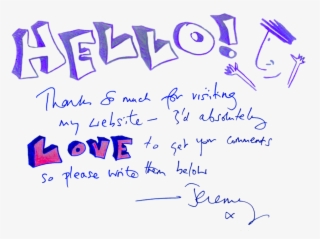 HELLO!
Thanks so much for visiting
my website - I'd absolutely
LOVE to get your comments
so please write them below
— Jeremy
x